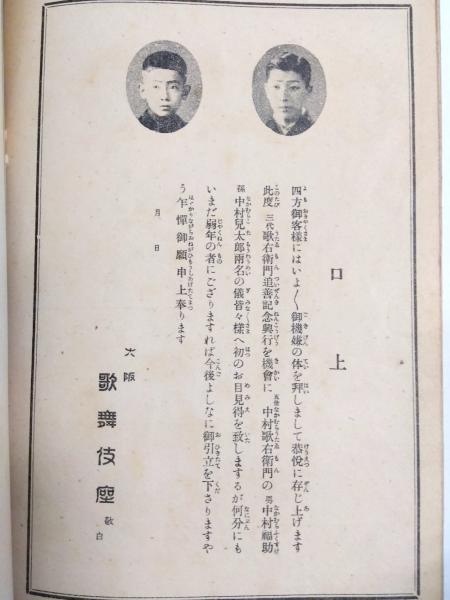 口上
四方御客樣にはいよ〳〵御機嫌の体を拜しまして恭悅に存じ上げます
此度 三代 歌右衛門追善記念興行を機會に 五世 中村歌右衛門の 男 中村福助
孫 中村兒太郎兩名の儀皆々樣へ初のお目見得を致しまするが何分にも
いまだ弱年の者にござりますれば今後よしなに御引立を下さりますや
う乍憚御願申上奉ります
月日
大阪
歌舞伎座
敬白